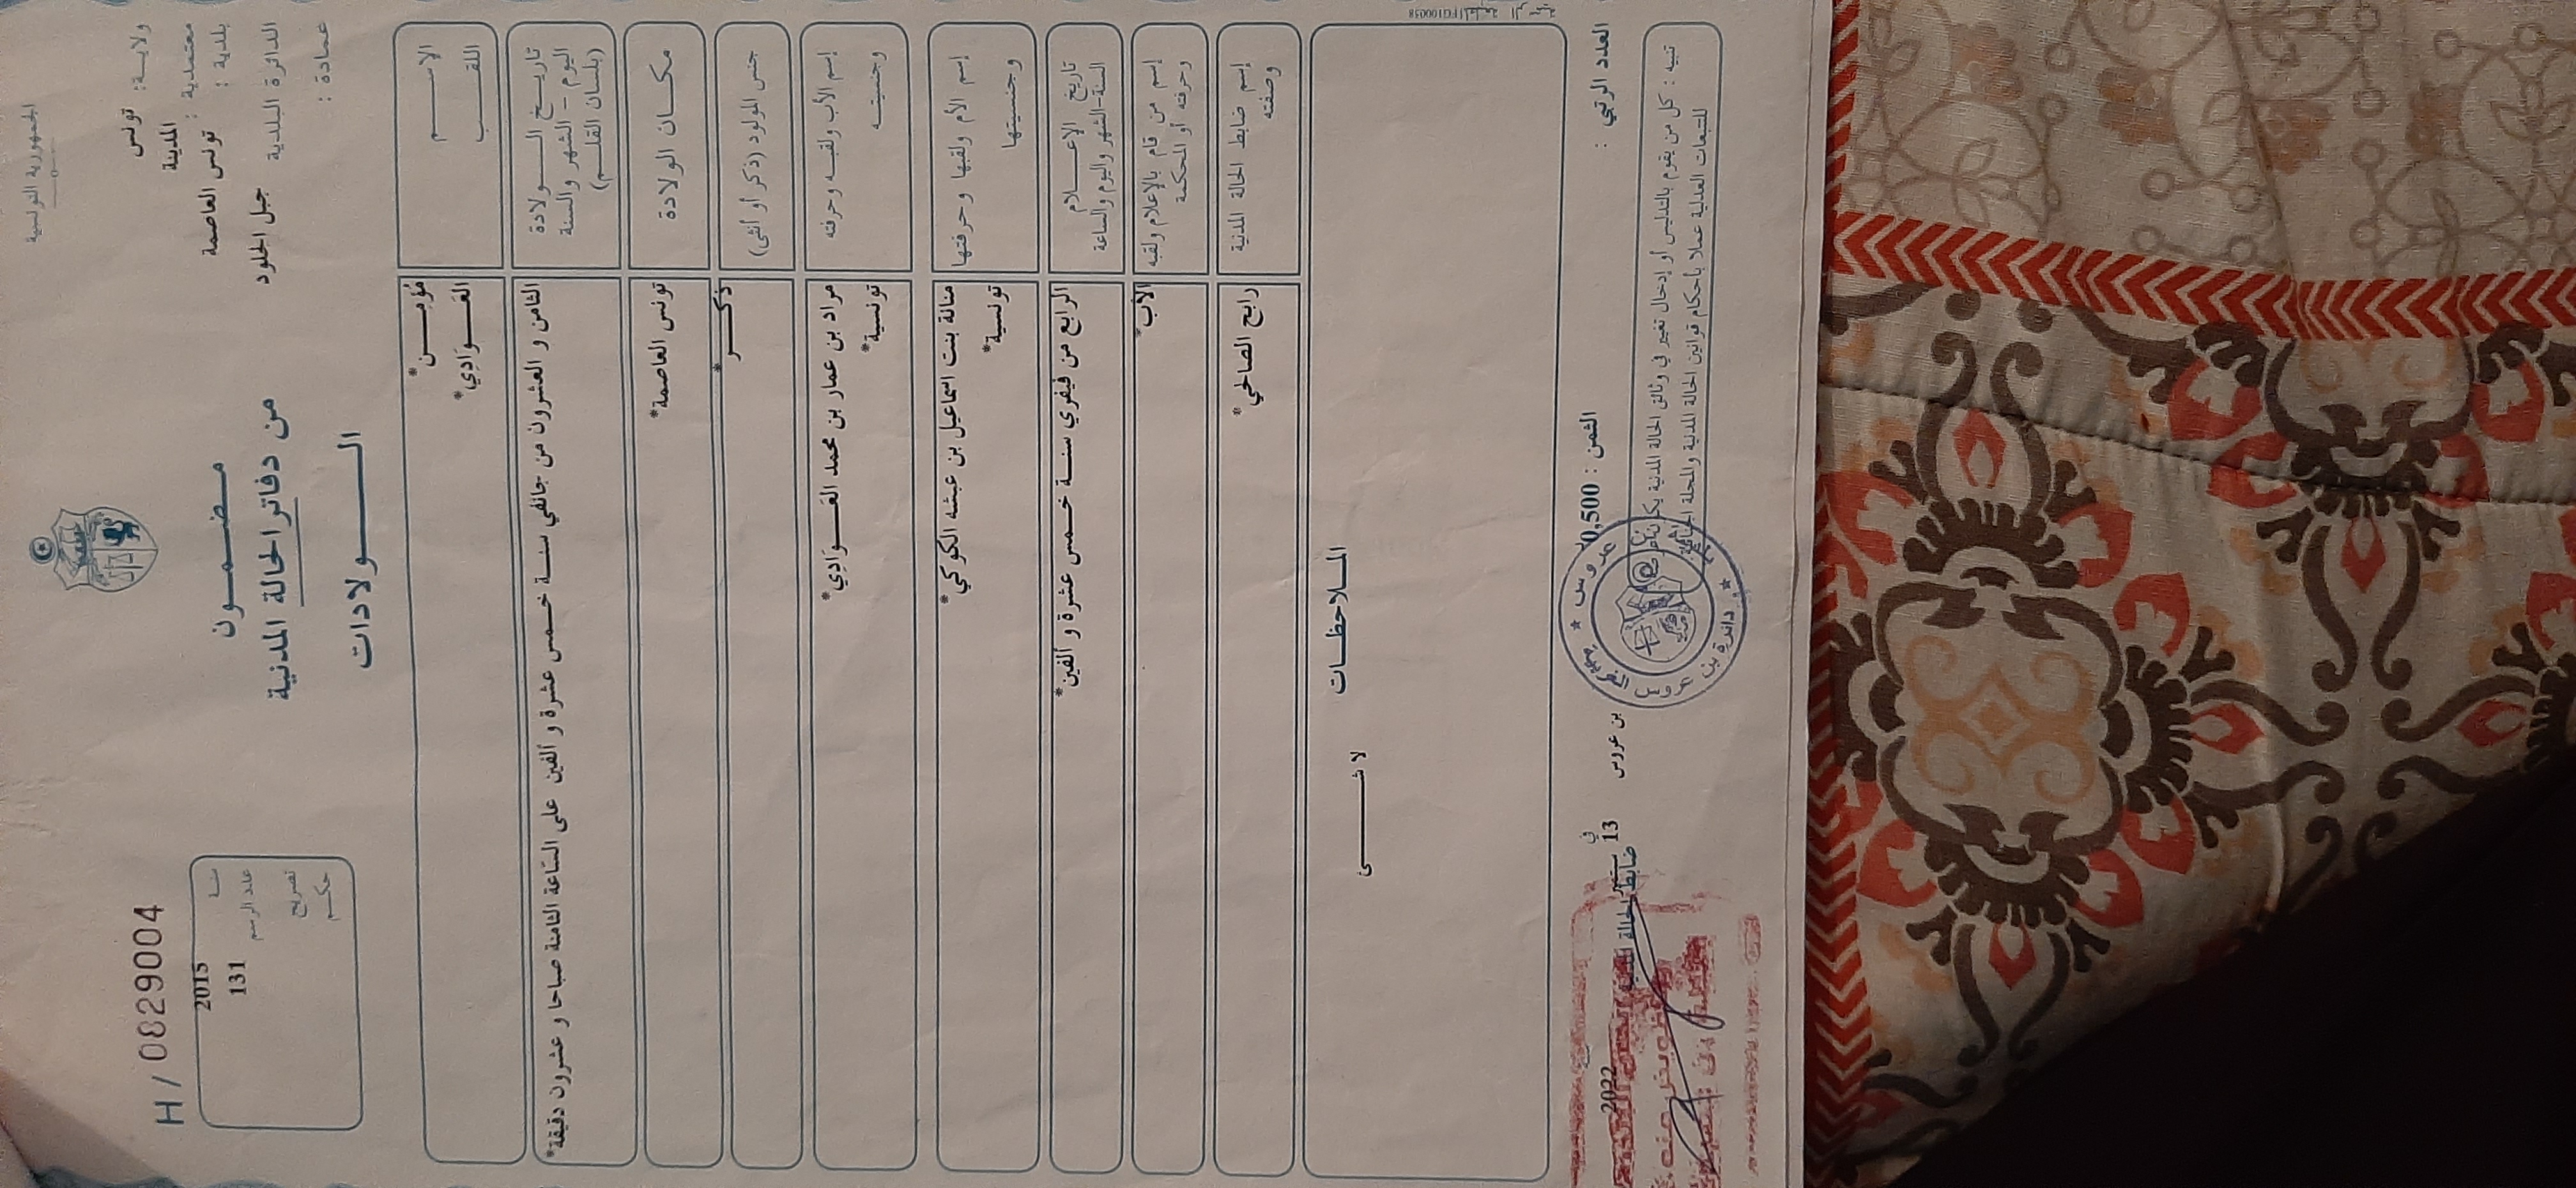 الجمهورية التونسية
ولاية: تونس
معتمدية : المدينة
بلدية : تونس العاصمة
الدائرة البلدية جبل الجلود
عمادة :
مضمون
من دفاتر الحالة المدنية
الولادات
H / 0829004
سنة 2015
عدد الرسم 131
تصريح
حكم
الاسم مُؤمِن*
اللقب العَوَادِي*
تاريخ الولادة
اليوم - الشهر والسنة
(بلسان القلم)
الثامن و العشرون من جانفي سنة خمس عشرة و ألفين على الساعة الثامنة صباحا و عشرون دقيقة*
مكان الولادة تونس العاصمة*
جنس المولود (ذكر أو أنثى) ذكر*
إسم الأب ولقبه وحرفته مراد بن عمار بن محمد العَوَادِي*
وجنسيته تونسية*
إسم الأم ولقبها وحرفتها منالة بنت اسماعيل بن عيشه الكوكي*
وجنسيتها تونسية*
تاريخ الإعلام
السنة-الشهر واليوم والساعة
الرابع من فيفري سنة خمس عشرة و ألفين*
إسم من قام بالإعلام ولقبه
وحرفته أو المحكمة
الأب*
إسم ضابط الحالة المدنية
وصفته
رابح الصالحي*
الملاحظات
لا شئ
العدد الرتبي :
الثمن : 0,500
بن عروس في 13 سبتمبر 2022
ضابط الحالة المدنية
تنبيه : كل من يقوم بالتدليس أو إدخال تغيير في وثائق الحالة المدنية يكون
للتتبعات العدلية عملا بأحكام قوانين الحالة المدنية والمجلة الجنائية
دائرة بن عروس